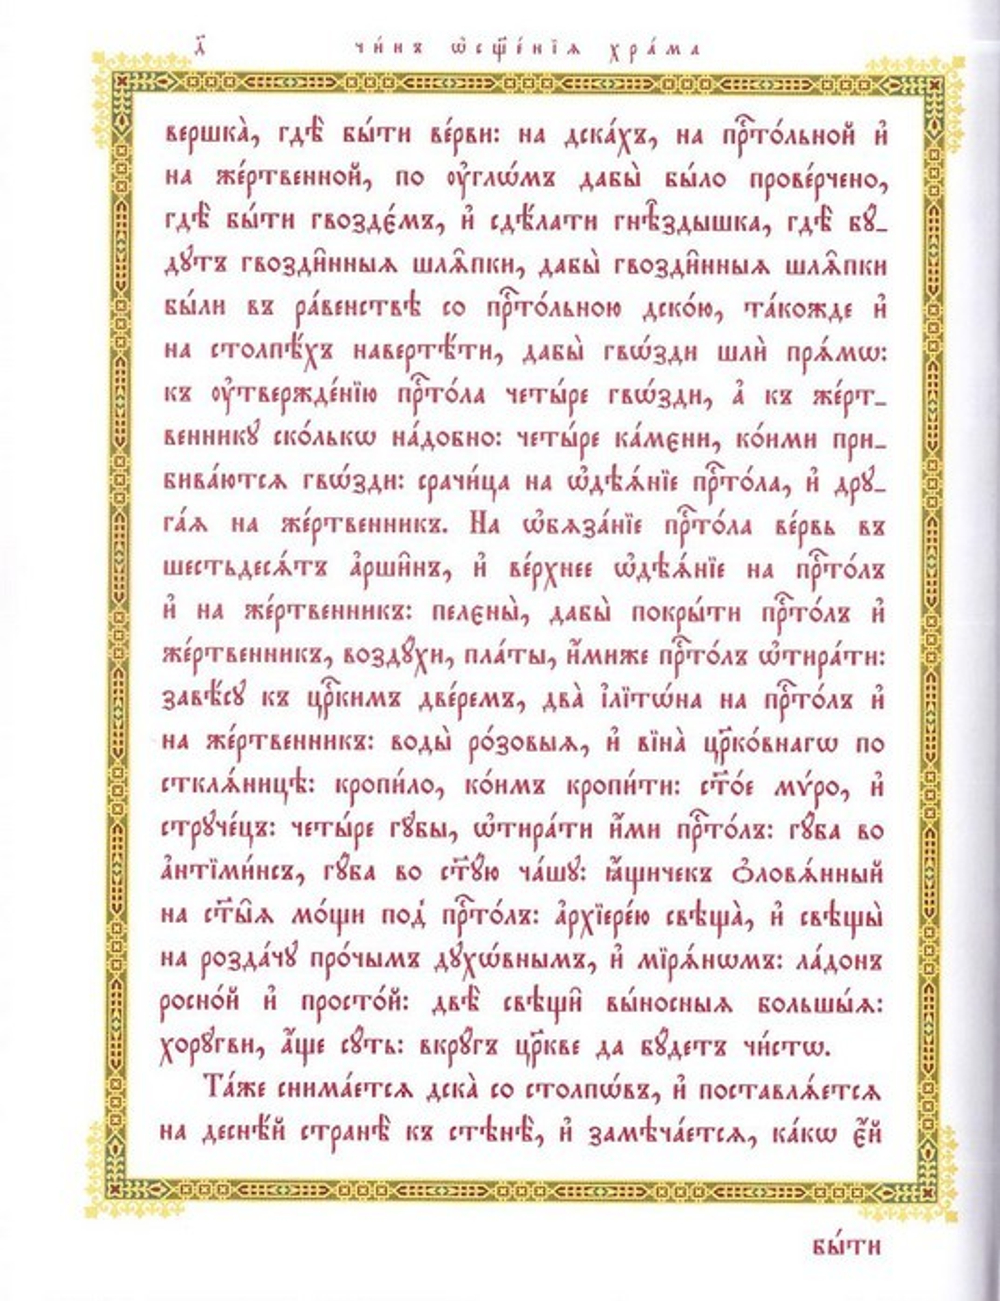 д҃ чи́нъ ѡ҆сщ҃е́нїѧ хра́ма
вершка̀, гдѣ̀ бы́ти ве́рви: на дска́хъ, на прⷭ҇то́льной и҆
на же́ртвенной, по ᲂу҆глѡ́мъ дабы̀ бы́ло прове́рчено,
гдѣ̀ бы́ти гвоздє́мъ, и҆ сдѣ́лати гнѣ̑здышка, гдѣ̀ бꙋ_
дꙋтъ гвозди̑нныѧ шлѧ̑пки, дабы̀ гвозди̑нныѧ шлѧ̑пки
бы́ли въ ра́венствѣ со прⷭ҇то́льною дско́ю, та́кожде и҆
на столпѣ́хъ навертѣ́ти, дабы̀ гвѡ́зди шлѝ прѧ́мѡ:
къ ᲂу҆твержде́нїю прⷭ҇то́ла четы́ре гвѡ́зди, а҆ къ же́рт_
венникꙋ ско́лькѡ на́добно: четы́ре ка́мєни, ко́ими при_
бива́ютсѧ гвѡ́зди: срачи́ца на ѡ҆дѣѧ́нїе прⷭ҇то́ла, и҆ дрꙋ_
га́ѧ на же́ртвенникъ. На ѡ҆бѧза́нїе прⷭ҇то́ла ве́рвь въ
шестьдесѧ́тъ а҆рши̑нъ, и҆ ве́рхнее ѡ҆дѣѧ́нїе на прⷭ҇то́лъ
и҆ на же́ртвенникъ: пелєны̀, дабы̀ покры́ти прⷭ҇то́лъ и҆
же́ртвенникъ, воздꙋ́хи, пла́ты, и҆́миже прⷭ҇то́лъ ѡ҆тира́ти:
завѣ́сꙋ къ цр҃кимъ две́ремъ, два̀ і҆лїтѡ́на на прⷭ҇то́лъ и҆
на же́ртвенникъ: воды̀ ро́зовыѧ, и҆ вїна̀ цр҃ко́внагѡ по
стклѧ́ницѣ: кропи́ло, ко́имъ кропи́ти: ст҃о́е мѵ́ро, и҆
стрꙋче́цъ: четы́ре гꙋ́бы, ѡ҆тира́ти и҆́ми прⷭ҇то́лъ: гꙋ́ба во
а҆нтїми́нсъ, гꙋ́ба во ст҃ꙋ́ю ча́шꙋ: ꙗ҆́щичекъ ѻ҆ловѧ́нный
на ст҃ы̑ѧ мо́щи под̾ прⷭ҇то́лъ: а҆рхїере́ю свѣща̀, и҆ свѣщы̀
на розда́чꙋ про́чымъ дꙋхѡ́внымъ, и҆ мїрѧ́нѡмъ: ла́донъ
росно́й и҆ просто́й: двѣ̀ свѣщи̑ вы́носныѧ большы́ѧ:
хорꙋ́гви, а҆́ще сꙋ́ть: вкрꙋ́гъ цр҃кве да бꙋ́детъ чи́стѡ.
Та́же снима́етсѧ дска̀ со столпѡ́въ, и҆ поставлѧ́етсѧ
на деснѣ́й странѣ̀ къ стѣнѣ̀, и҆ замѣча́етсѧ, ка́кѡ є҆́й
бы́ти